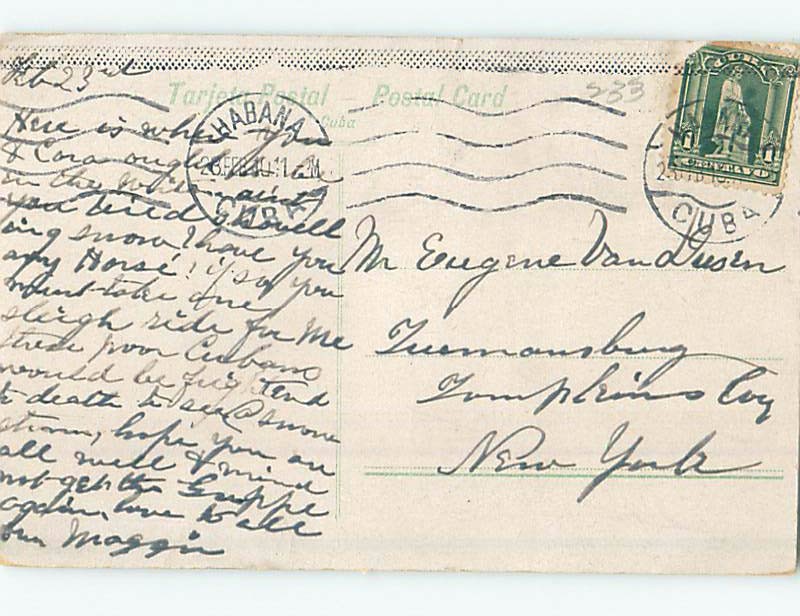 Feb 23rd
Tarjeta Postal Postal Card
Cuba
233
HABANA
23 FEB 10 11 M
CUBA
CUBA
1 1
CENTAVO
CUBA
Here is where you
& Cora ought to be
in the winter aint
you tired shovell
ing snow, have you
any Horse! if so you
must take one
sleigh ride for me
these poor Cubans
would be frightend
to death to see a snow
storm, hope you are
all well & mind
not get the Grippe
again, love to all
Maggie
Mr Eugene Van Dusen
Trumansburg
Tompkins Coy
New York